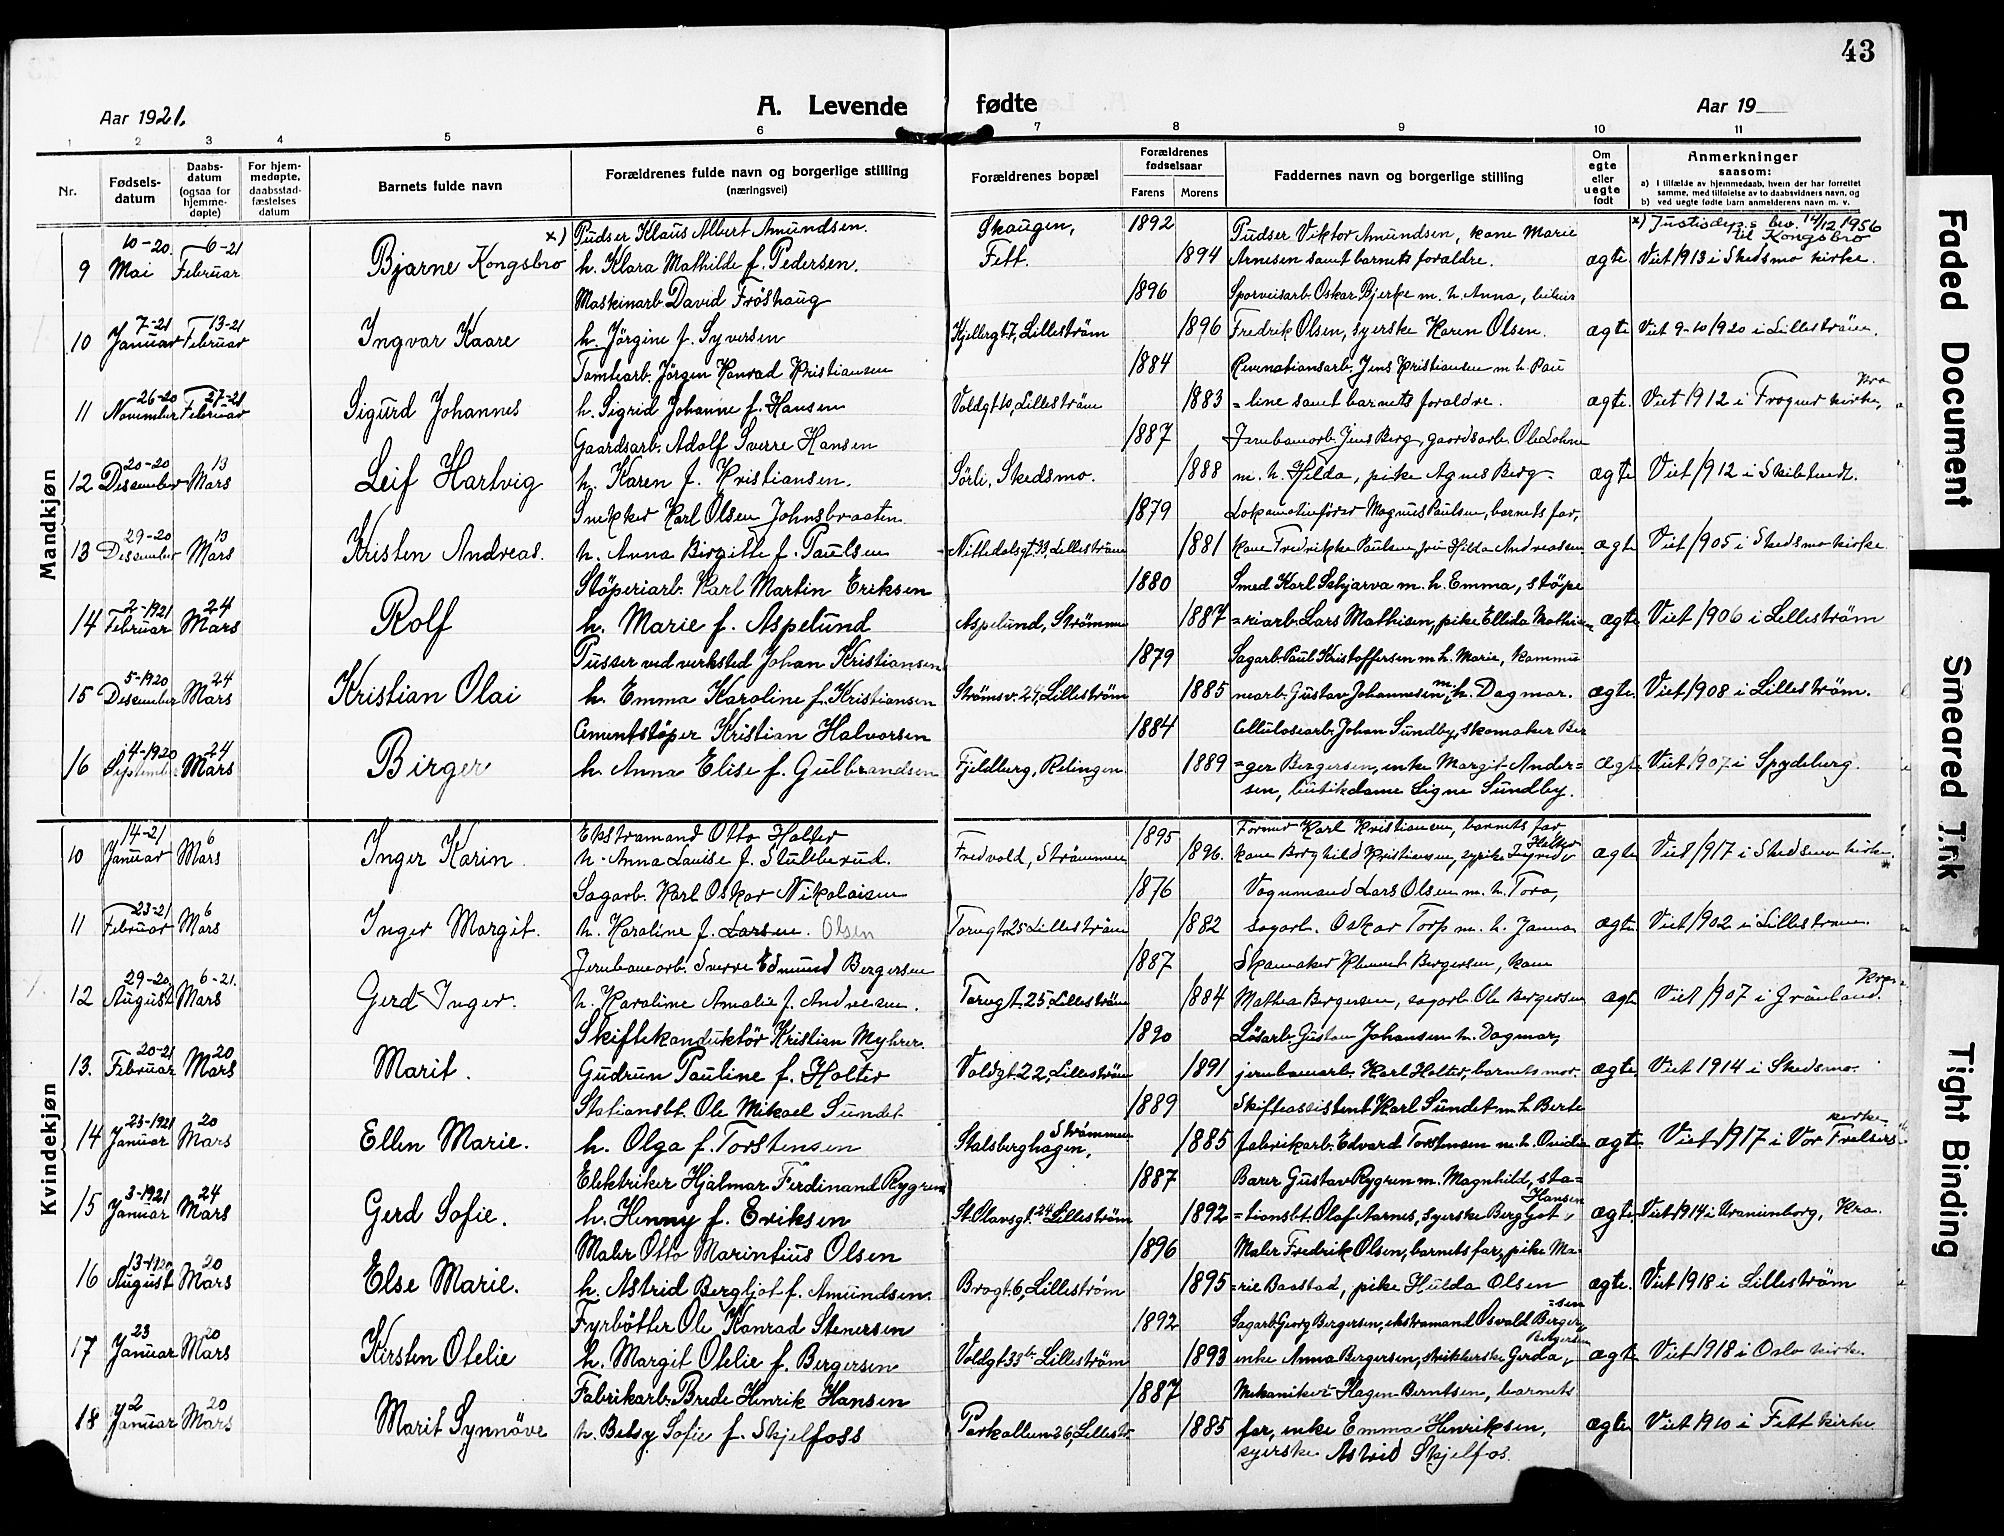 43
Aar 1921.
A. Levende fødte
Aar 19
1 2 3 4 5 6 7 8 9 10 11
Nr.
Fødsels-datum
Daabs-datum (ogsaa for hjemme-døpte)
For hjem-medøpte, daabsstad-fæstelses datum
Barnets fulde navn
Forældrenes fulde navn og borgerlige stilling (næringsvei)
Forældrenes bopæl
Forældrenes fødselsaar
Farens Morens
Faddernes navn og borgerlige stilling
Om egte eller uegte født
Anmerkninger saasom:
a) I tilfælde av hjemmedaab, hvem der har forrettet samme, med tilføielse av to daabsvidners navn, og
b) ved uegte fødte barn anmelderens navn m. v.
Mandkjøn
10-20 6-21 x) Pudser Klaus Albert Amundsen. Skaugen, 1892 Pudser Viktor Amundsen, kone Marie x) Justisdep.s bev. 14/12 1956 til Kongsbro
9 Mai Februar Bjarne Kongsbro h. Klara Mathilde f. Pedersen. Fett. 1894 Arnesen samt barnets foraldre. ægte Viet 1913 i Skedsmo kirke.
Maskinarb. David Fröshaug 1896 Sporveisarb. Oskar Bjerke m. h. Anna,
7-21 13-21
10 Januar Februar Ingvar Kaare h. Jörgine f. Syversen Kjellergt 7, Lilleström 1896 Fredrik Olsen, syerske Karen Olsen. ægte Viet 9-10/1920 i Lilleström.
Tomtearb. Jörgen Konrad Kristiansen 1884 Renovationsarb. Jens Kristiansen m h Pau
26-20 27-21
11 November Februar Sigurd Johannes h. Sigrid Johanne f. Hansen Voldgt 10, Lilleström 1883 =line samt barnets foraldre. ægte. Viet 1912 i Frogner kirke, Kra
Gaardsarb. Adolf Sverre Hansen 1887 Jernbanearb. Jens Berg, gaardsarb. Ole
20-20 13
12 Desember Mars Leif Hartvig h. Karen f. Kristiansen. Sörli, Skedsmo. 1888 m. h. Hilda, pike Agnes Berg. ægte Viet 1912 i Skibtvedt.
Snekker Karl Olsen Johnsbraaten 1879 Lokomotivförer Magnus Paulsen, barnets far,
29-20 13
13 Desember Mars Kristen Andreas. h. Anna Birgitte f. Paulsen Nittedalsgt. 33, Lilleström 1881 kone Fredrikke Paulsen, frk Hilda Andreassen ægte Viet 1905 i Skedsmo kirke
Stöperiarb. Karl Martin Eriksen 1880 Smed Karl Schjarva m. h. Emma, stöpe
2-1921 24
14 Februar Mars Rolf h. Marie f. Aspelund Aspelund, Strömmen 1887 =riarb. Lars Mathisen, pike Ellida Mathisen ægte Viet 1906 i Lilleström
Pusser ved verksted Johan Kristiansen 1879 Sagarb. Paul Kristoffersen m h. Marie, kommu
5-1920 24
15 Desember Mars Kristian Olai h. Emma Karoline f. Kristiansen Strömsv. 24, Lilleström 1885 nearb. Gustav Johannesen m. h. Dagmar. ægte. Viet 1908 i Lilleström.
Cementstöper Kristian Halvorsen 1884 Cellulosearb. Johan Sundby, skomaker Bir
14-1920 24
16 September Mars Birger h. Anna Elise f. Gulbrandsen Fjeldberg, Relingen. 1889 =ger Bergersen, enke Margit Ander= ægte Viet 1907 i Spydeberg.
sen, butikdame Signe Sundby.
Kvindekjøn
14-21 6 Ekstramand Otto Holter 1895 Former Karl Kristiansen, barnets far
10 Januar Mars Inger Karin. h. Anna Lovise f. Stubberud. Fredvold, Strömmen 1896. kone Borghild Kristiansen, Holter ægte Viet 1917 i Skedsmo kirke.
Sagarb. Karl Oskar Nikolaisen 1876 Vognmand Lars Olsen m. h. Tora,
23-21 6
11 Februar Mars Inger Margit. h. Karoline f. Larsen. Olsen Torvgt. 25 Lilleström 1882 sagarb. Oskar Torp m. h. Janna ægte Viet 1902 i Lilleström.
Jernbanearb. Sverre Edmund Bergersen 1887 Skomaker Klement Bergersen, kone
29-20 6-21.
12 August Mars Gerd Inger. h. Karoline Amalie f. Andresen. Torvgt. 25, Lilleström 1884 Mathea Bergersen, sagarb. Ole Bergersen ægte Viet 1907 i Grönland. Kra
Skiftekonduktör Kristian Myhrer. 1890 Lösarb. Gustav Johansen h. Dagmar,
20-21 20
13. Februar Mars Marit. Gudrun Pauline f. Holter Voldgt. 22, Lilleström 1891 jernbanearb. Karl Holter, barnets mor. ægte Viet 1914 i Skedsmo.
Stationsbt. Ole Mikael Sundet 1889 Skifteassistent Karl Sundet m. h Berte
23-1921 20
14 Januar Mars Ellen Marie. h. Olga f. Torstensen Stalsberghagen, Strömmen 1885 fabrikarb. Edvard Torstensen m. h. Ovidia ægte. Viet 1917 i Vor Frelsers kirke
Elektriker Hjalmar Ferdinand Rygren 1887 Barer Gustav Rygren m. Magnhild, sta=
3-1921 24
15 Januar Mars Gerd Sofie. h. Henny f. Eriksen St. Olavsgt. 24 Lilleström 1892 =tionsbt. Olaf Aarnes, syerske Bergljot Hansen ægte Viet 1914 i Uranienborg, Kra.
Maler Otto Marintius Olsen 1896 Maler Fredrik Olsen, barnets far, pike Ma-
13-1920 20
16 August Mars Else Marie. h. Astrid Bergljot f. Amundsen. Brogt. 6, Lilleström 1895 =rie Baastad, pike Hulda Olsen ægte. Viet 1918 i Lilleström
Fyrbötter Ole Konrad Stenersen 1892 Sagarb. Georg Bergersen, ekstramand Osvald Berger=sen
23 20
17 Januar Mars Kirsten Otelie h. Margit Otelie f. Bergersen Voldgt 33b Lilleström 1893 enke Anna Bergersen, strikkerske Gerda Bergersen ægte Viet 1918 i Oslo kirke.
Fabrikarb. Brede Henrik Hansen 1887 Mekaniker Hagen Berntsen, barnets
2 20
18 Januar Mars Marit Synnöve h. Betsy Sofie f. Skjelfoss Parkalleen 26, Lillestr 1885 far, enke Emma Henriksen, ægte Viet 1910 i Fett kirke.
syerske Astrid Skjelfos.
Faded Document
Smeared Trk
Tight Binding